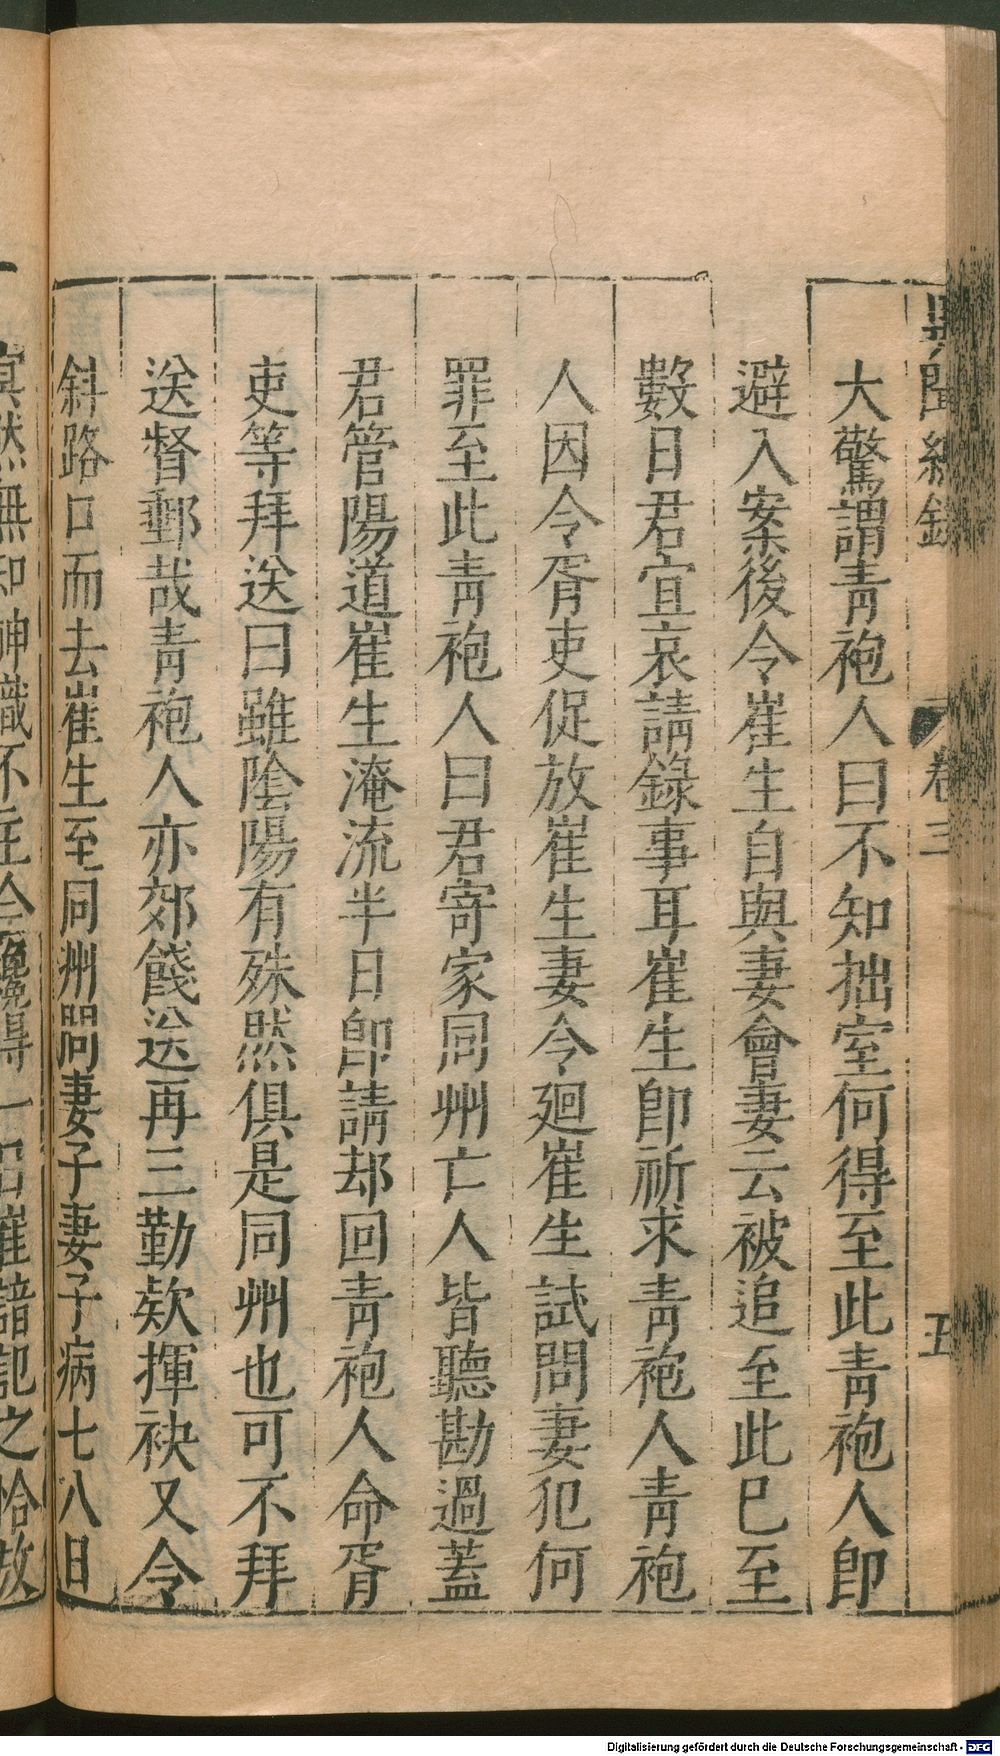 大驚謂靑袍人曰不知拙室何得至此靑袍人卽
避入案後令崔生自與妻會妻云被追至此巳至
數日君宜哀請錄事耳崔生卽祈求靑袍人靑袍
人因令胥吏促放崔生妻令廻崔生試問妻犯何
罪至此靑袍人曰君寄家同州亡人皆聽勘過蓋
君管陽道崔生淹流半日卽請却回靑袍人命胥
吏等拜送曰雖陰陽有殊然俱是同州也可不拜
送督郵哉靑袍人亦郊餞送再三勤欵揮袂又令
斜路口而去崔生至同州問妻子妻子病七八日
冥然無知神識不生今纔得一日崔諳記之恰放
卷三
五
Digitalisierung gefördert durch die Deutsche Forschungsgemeinschaft - DFG